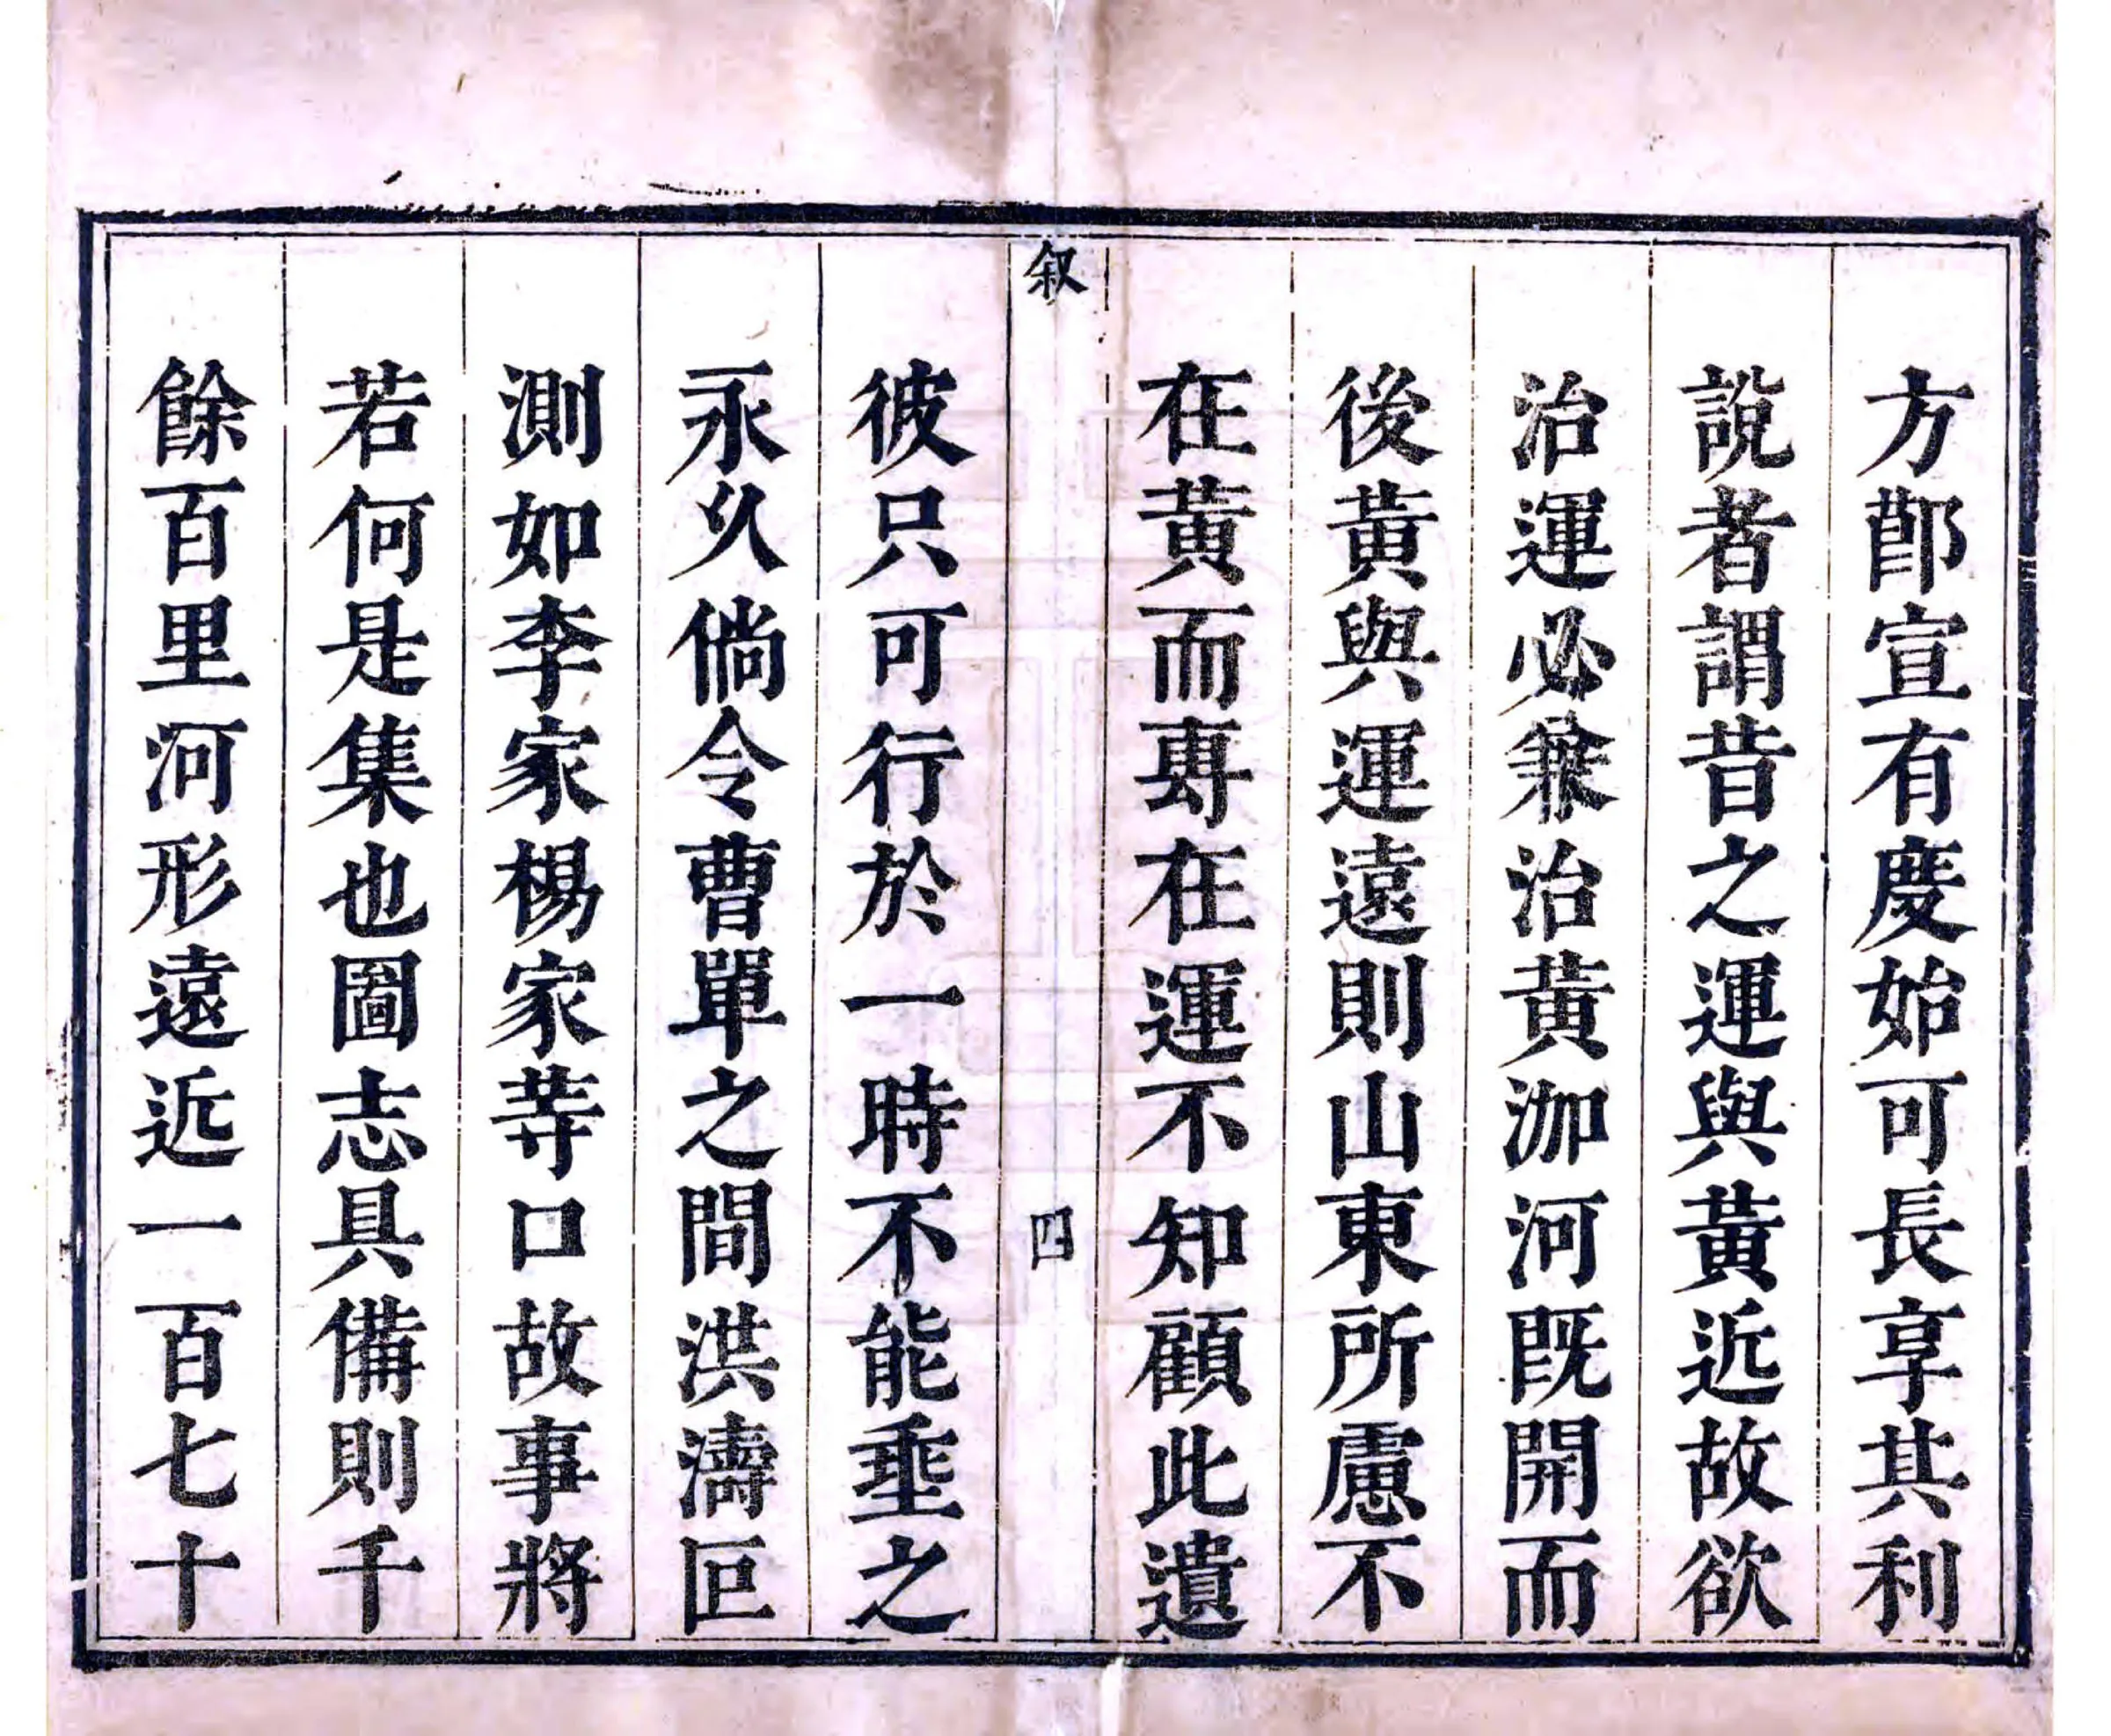 方鄖宣有慶始可長享其利
說者謂昔之運與黃近故欲
治運必兼治黃泇河既開而
後黃與運遠則山東所慮不
在黃而專在運不知顧此遺
叙
四
彼只可行於一時不能垂之
永久倘令曹單之間洪濤叵
測如李家楊家䓁口故事將
若何是集也圖志具備則千
餘百里河形遠近一百七十